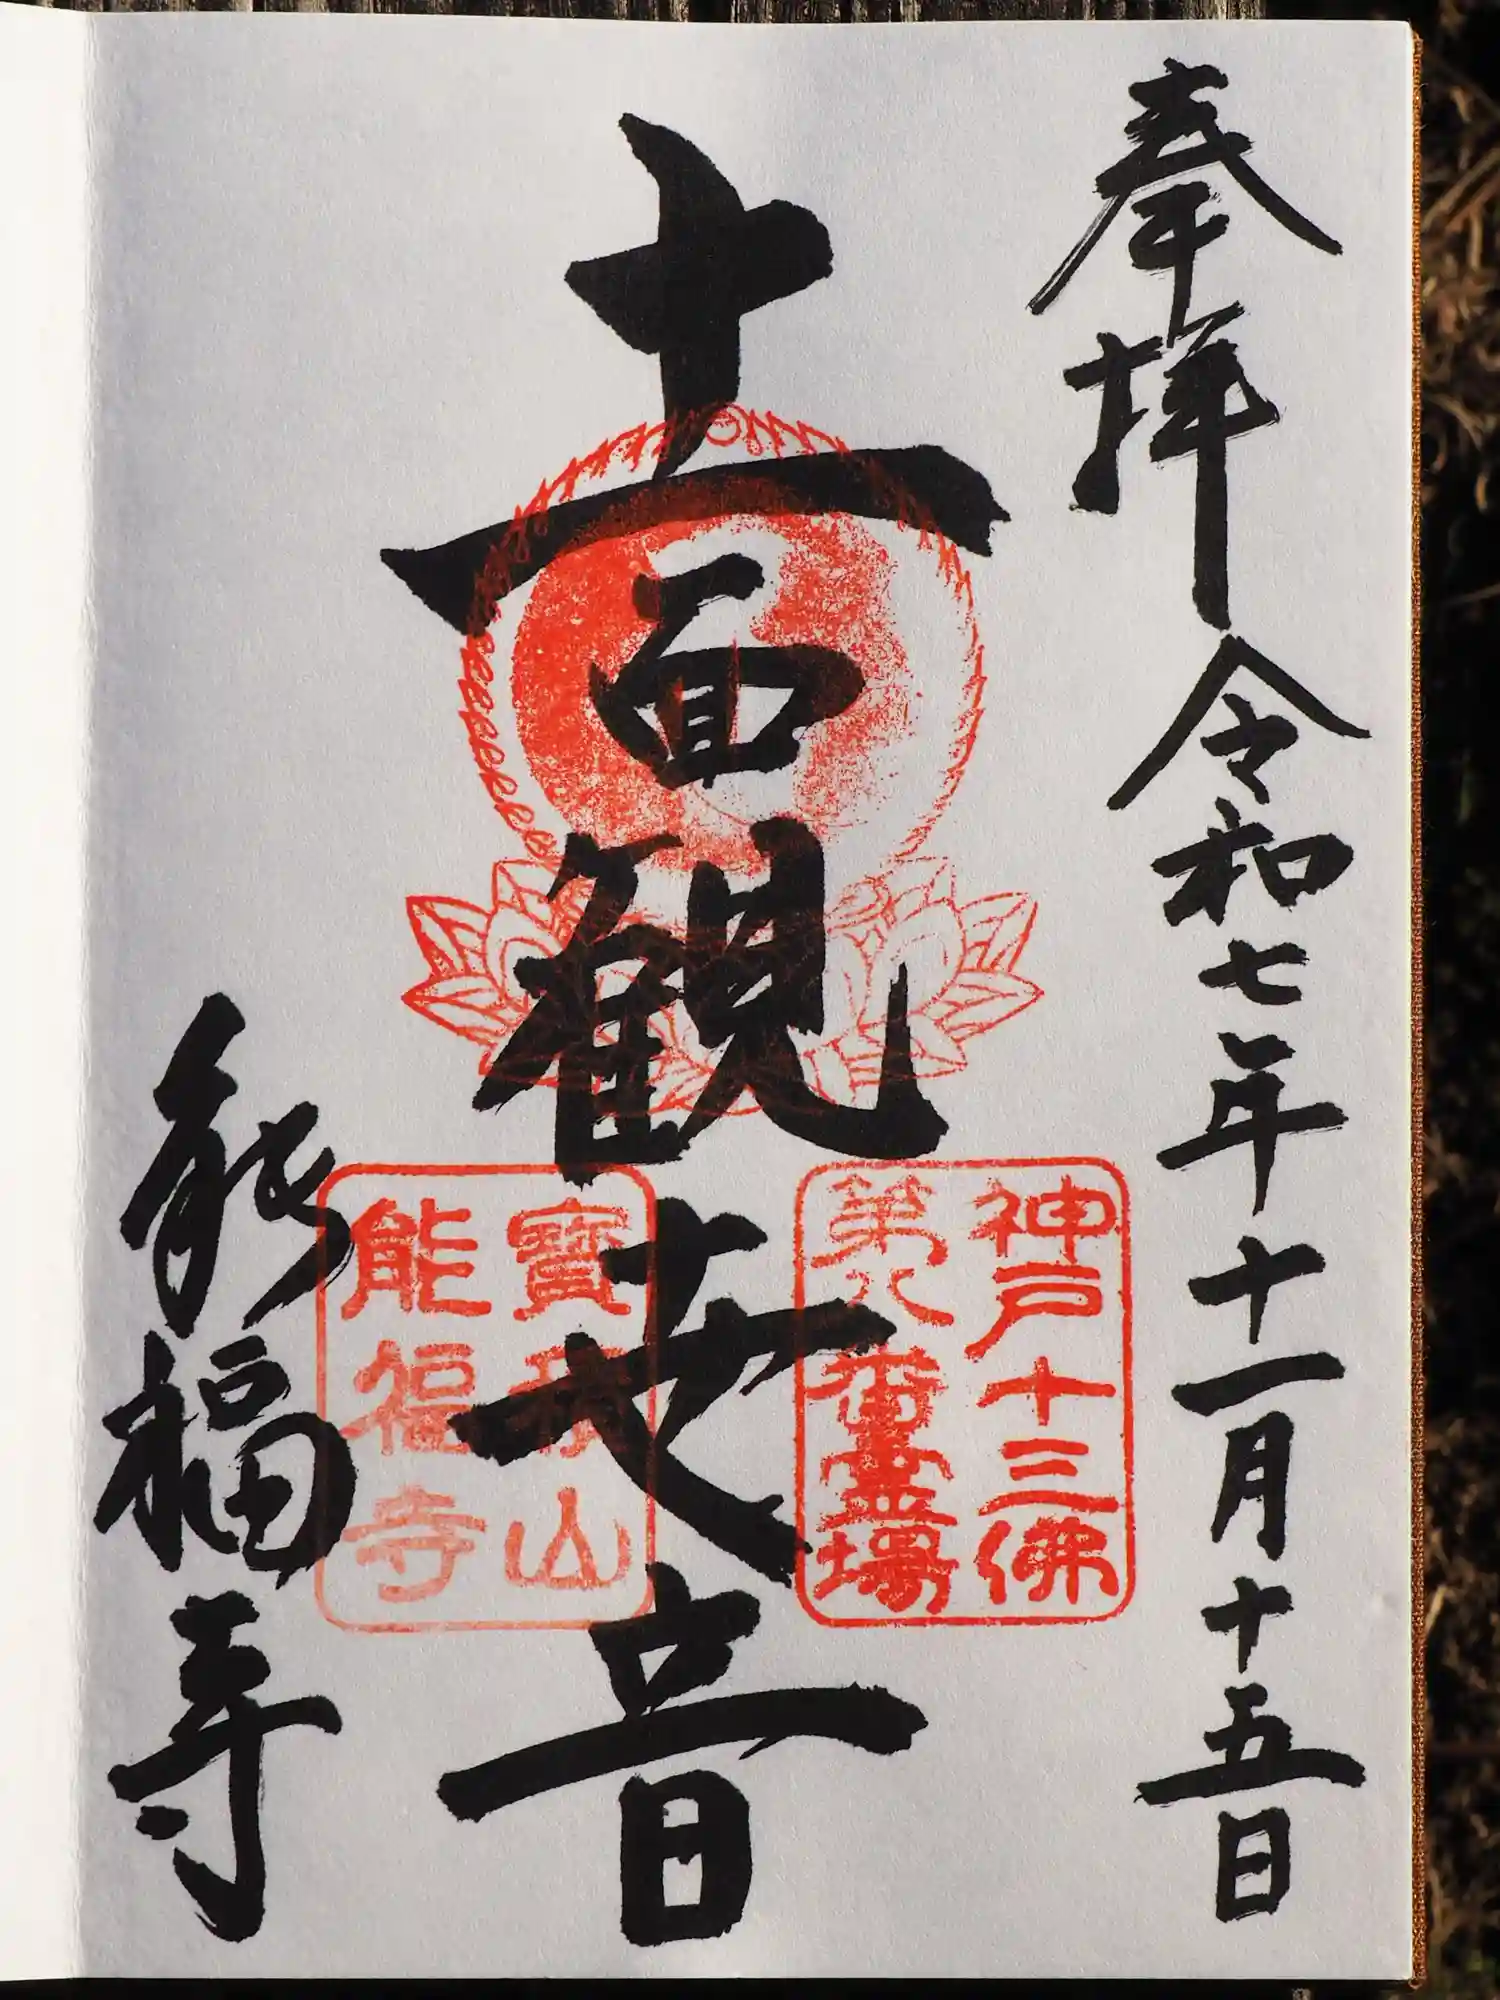 奉拝 令和七年十一月十五日
十一面観世音
神戸十三佛
第八番霊場
寶積山
能福寺
能福寺